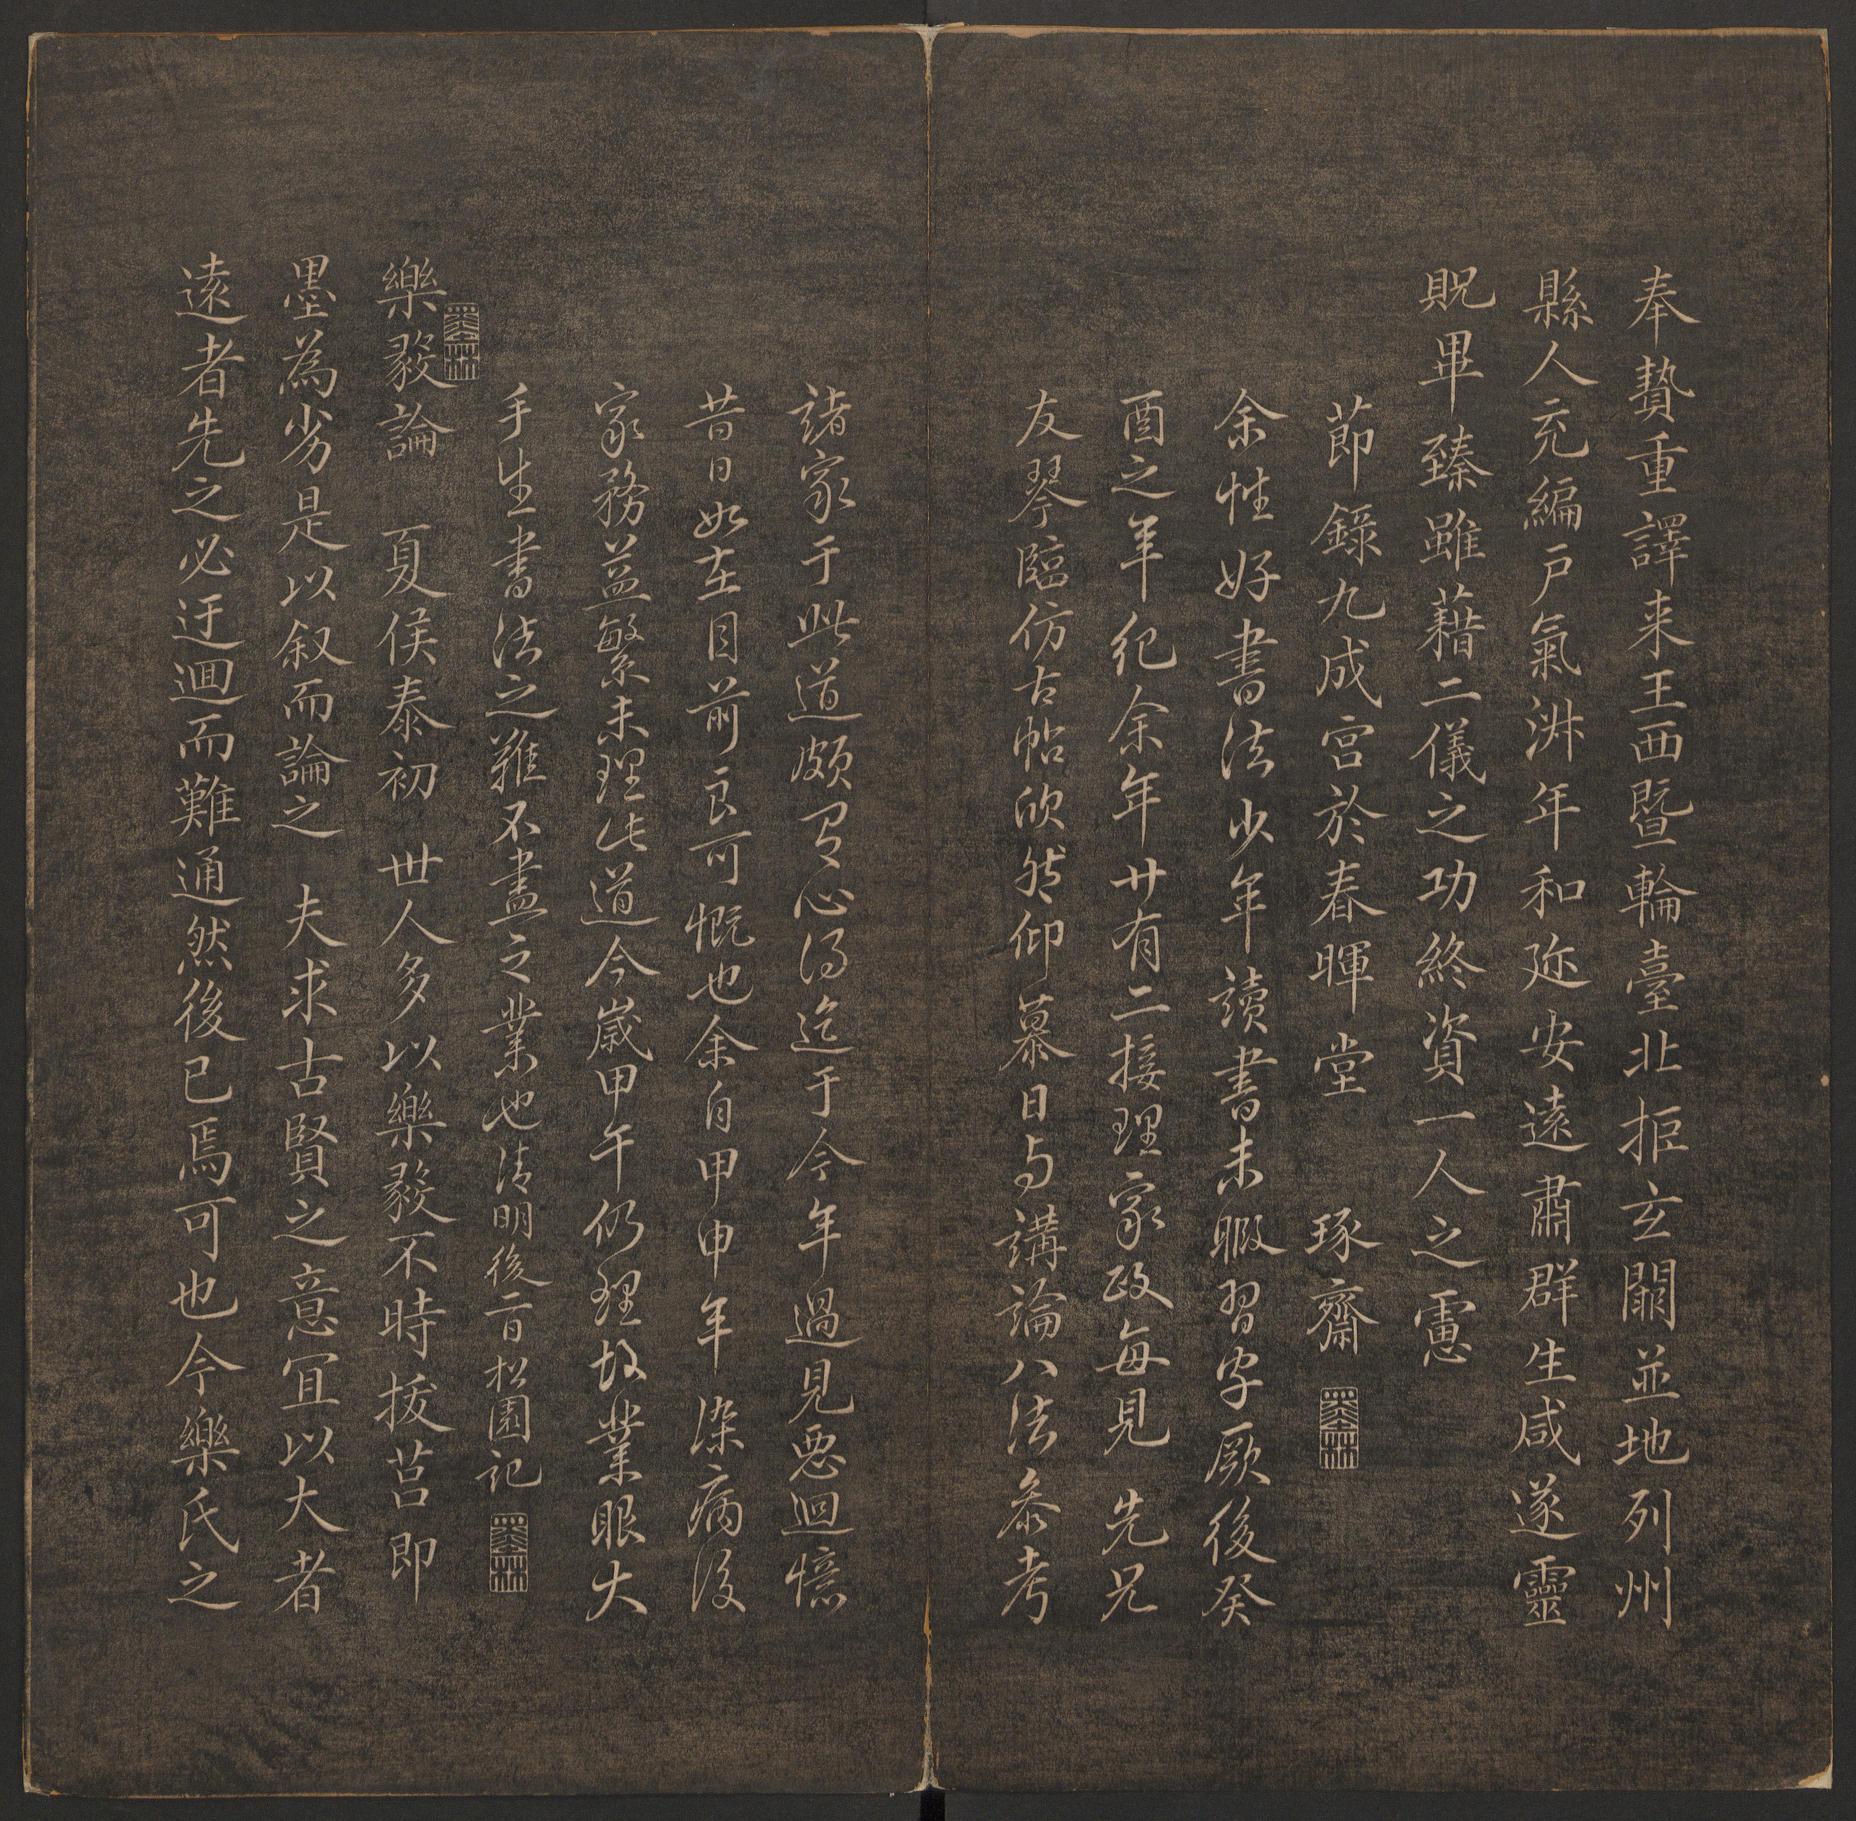 奉贄重譯来王西暨輪臺北拒玄闕並地列州
縣人充編戶氣淋年和迩安遠肅群生咸遂靈
貺畢臻雖藉二儀之功終資一人之慮
節錄九成宮於春暉堂 琢齋
余性好書法少年讀書未暇習字厥後癸
酉之年紀余年廿有二接理家政每見 先兄
友琴臨仿古帖欣然仰慕日与講論八法叅考
諸家于此道頗有心得迄于今年過見惡迴憶
昔日如在目前良可慨也余自甲申年染病後
家務益繁未理此道今歲甲午仍理故業眼大
手生書法之難不盡之業也清明後二日松園記
樂毅論 夏侯泰初 世人多以樂毅不時拔莒即
墨為劣是以叙而論之 夫求古賢之意宜以大者
遠者先之必迂迴而難通然後已焉可也今樂氏之